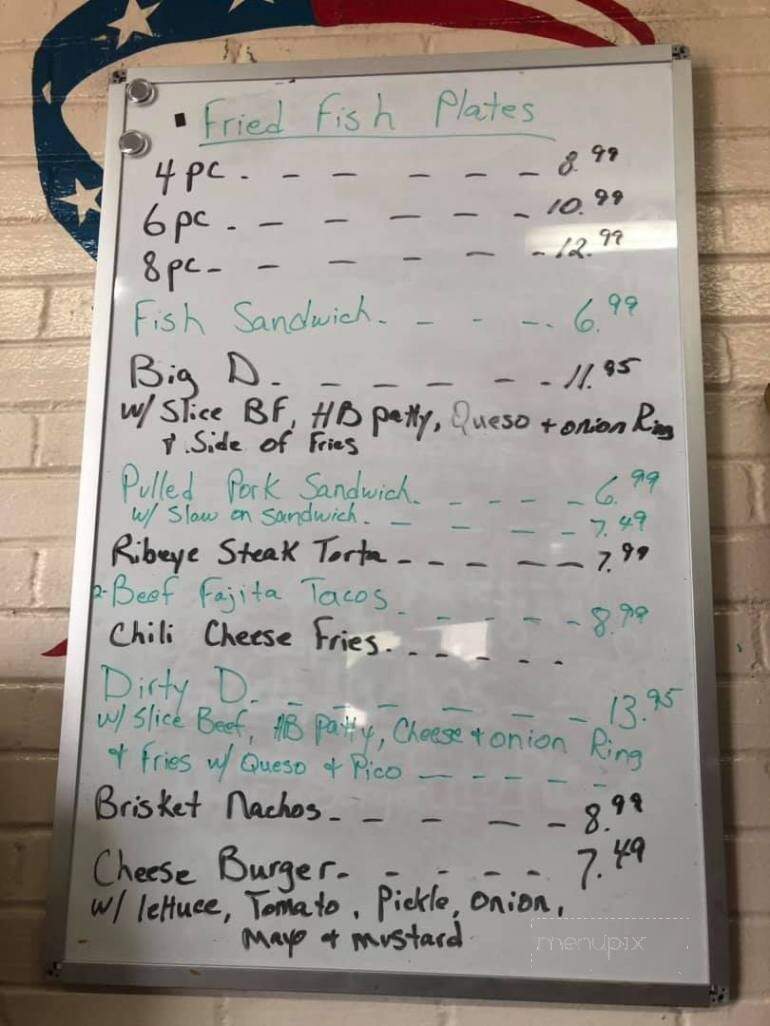 Fried Fish Plates
4 pc. - - - - - - 8.99
6 pc. - - - - - 10.99
8 pc - - - - - - 12.99
Fish Sandwich. - - - -. 6.99
Big D. - - - - - - 11.95
w/ Slice BF, HB patty, Queso + onion Ring
& Side of Fries
Pulled Pork Sandwich. - - - - 6.99
w/ Slaw on Sandwich. - - - - 7.49
Ribeye Steak Torta - - - - - 7.99
2-Beef Fajita Tacos. - - - - - 8.99
Chili Cheese Fries. - - - - -
Dirty D. - - - - - - 13.95
w/ Slice Beef, HB patty, Cheese + onion Ring
+ Fries w/ Queso + Pico - - - - -
Brisket Nachos - - - - - 8.99
Cheese Burger. - - - - 7.49
w/ lettuce, Tomato, Pickle, Onion,
Mayo + mustard
menupix